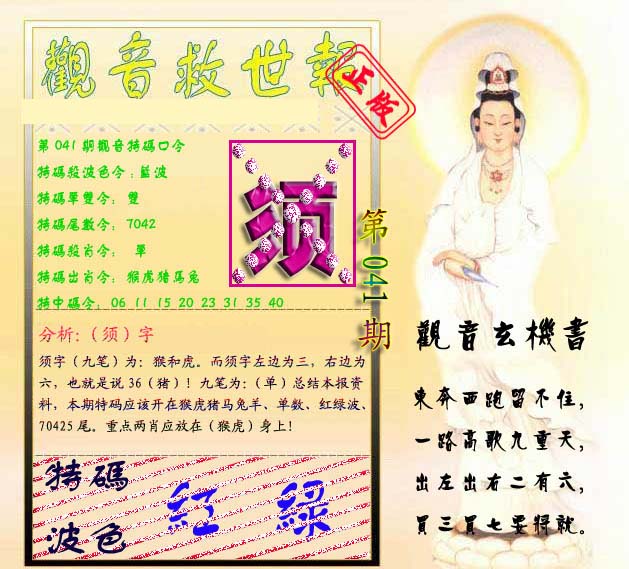 觀音救世報
正版
第041期觀音特碼口令
特碼殺波色令:藍波
特碼單雙令: 雙
特碼尾數令: 7042
特碼殺肖令: 單
特碼出肖令: 猴虎猪馬兔
特中碼令: 06 11 15 20 23 31 35 40
须
第041期
分析:（须）字
须字（九笔）为：猴和虎。而须字左边为三，右边为
六，也就是说36（猪）！九笔为：（单）总结本报资
料，本期特码应该开在猴虎猪马兔羊、单数、红绿波、
70425尾。重点两肖应放在（猴虎）身上！
特碼 紅 綠
波色
觀音玄機書
東奔西跑留不住，
一路高歌九重天，
出左出右二有六，
買三買七要將就。